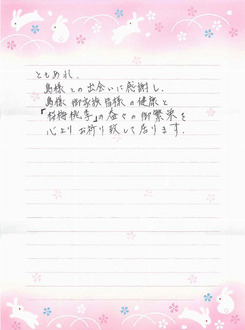 ともあれ、
島様との出会いに感謝し、
島様御家族皆様の健康と
「桜梅桃李」の益々の御繁栄を
心よりお祈り致して居ります。